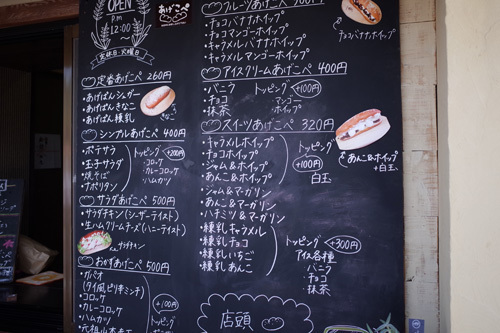 OPEN
P.M
12:00
〜
定休日・火曜日
あげこぺ
定番あげこぺ 260円
・あげぱんシュガー
・あげぱんきなこ
・あげぱん練乳
シンプルあげこぺ 400円
・ポテサラ
・玉子サラダ
・焼そば
・ナポリタン
トッピング +200円
・コロッケ
・カレーコロッケ
・ハムカツ
サラダあげこぺ 500円
・サラダチキン(シーザーテイスト)
・生ハムクリームチーズ(ハニーテイスト)
サラダチキン
おかずあげこぺ 500円
・ガパオ
(タイ風ピリ辛ミンチ)
・コロッケ
・カレーコロッケ
・ハムカツ
+100円
フルーツあげこぺ
・チョコバナナホイップ
・チョコマンゴーホイップ
・キャラメルバナナホイップ
・キャラメルマンゴーホイップ
チョコバナナホイップ
アイスクリームあげこぺ 400円
・バニラ
・チョコ
・抹茶
トッピング +100円
マンゴー
ホイップ
スイーツあげこぺ 320円
・キャラメルホイップ
・チョコホイップ
・ジャム&ホイップ
・あんこ&ホイップ
・ジャム&マーガリン
・あんこ&マーガリン
・ハチミツ&マーガリン
・練乳キャラメル
・練乳チョコ
・練乳いちご
・練乳あんこ
トッピング
+100円
白玉
あんこ&ホイップ
+白玉
トッピング +300円
アイス各種
・バニラ
・チョコ
・抹茶
店頭